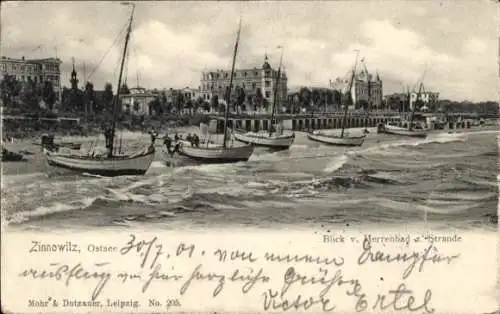 Zinnowitz, Ostsee
Blick v. Herrenbad z. Strande
30/7. 01. von unserm Dampfer
ausflug von hier herzliche Grüße
Victor Ertel
Mohr & Dutzauer, Leipzig. No. 205.